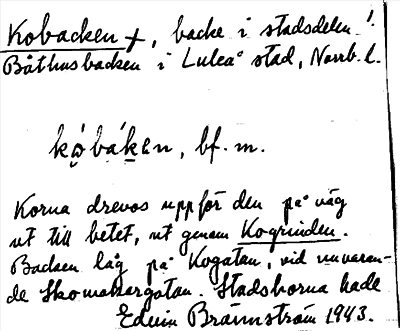 Kobacken +, backe i stadsdelen
Båthusbacken i Luleå stad, Norrb. l.
kǫ̀báken, bf. m.
Korna drevos uppför den på väg
ut till betet, ut genom Kogrinden.
Backen låg på Kogatan, vid nuvaran-
de Skomakargatan. Stadsborna hade
Edvin Brännström 1943.